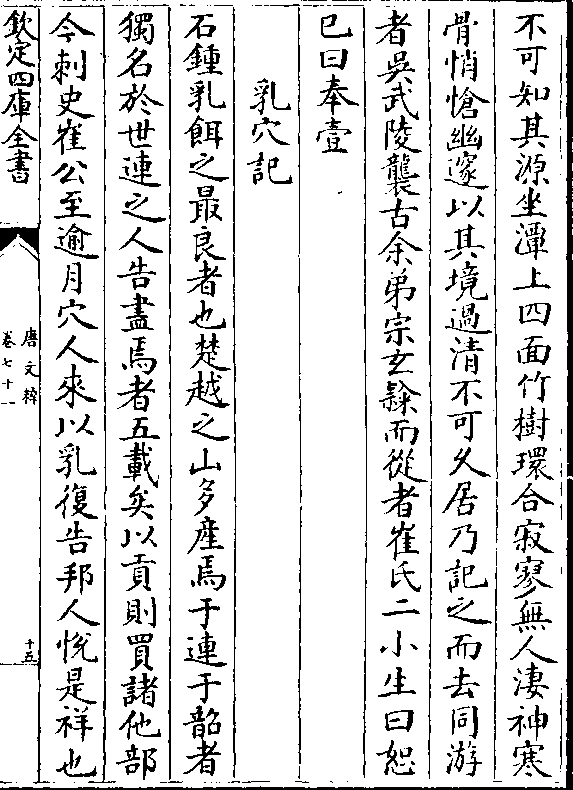 不可知其源坐潭上四面竹樹環合寂寥無人淒神寒
骨悄愴幽邃以其境過清不可久居乃記之而去同游
者吳武陵龔古余弟宗玄隸而從者崔氏二小生曰恕
已曰奉壹
乳穴記
石鍾乳餌之最良者也楚越之山多産焉于連于韶者
獨名於世連之人告盡焉者五載矣以貢則買諸他部
今刺史崔公至逾月穴人來以乳復告邦人悅是祥也
欽定四庫全書
唐文粹
卷七十一
十五